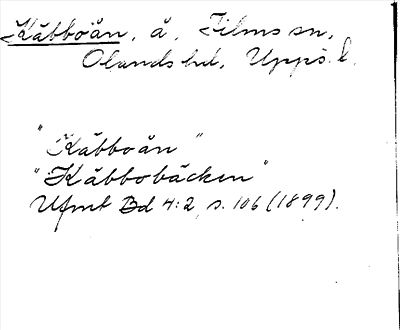 Kåbboån, å, Films sn,
Olands hd, Upps. l.
"Kåbboån"
"Kåbbobäcken"
Ufmt Bd 4:2, s. 106 (1899).